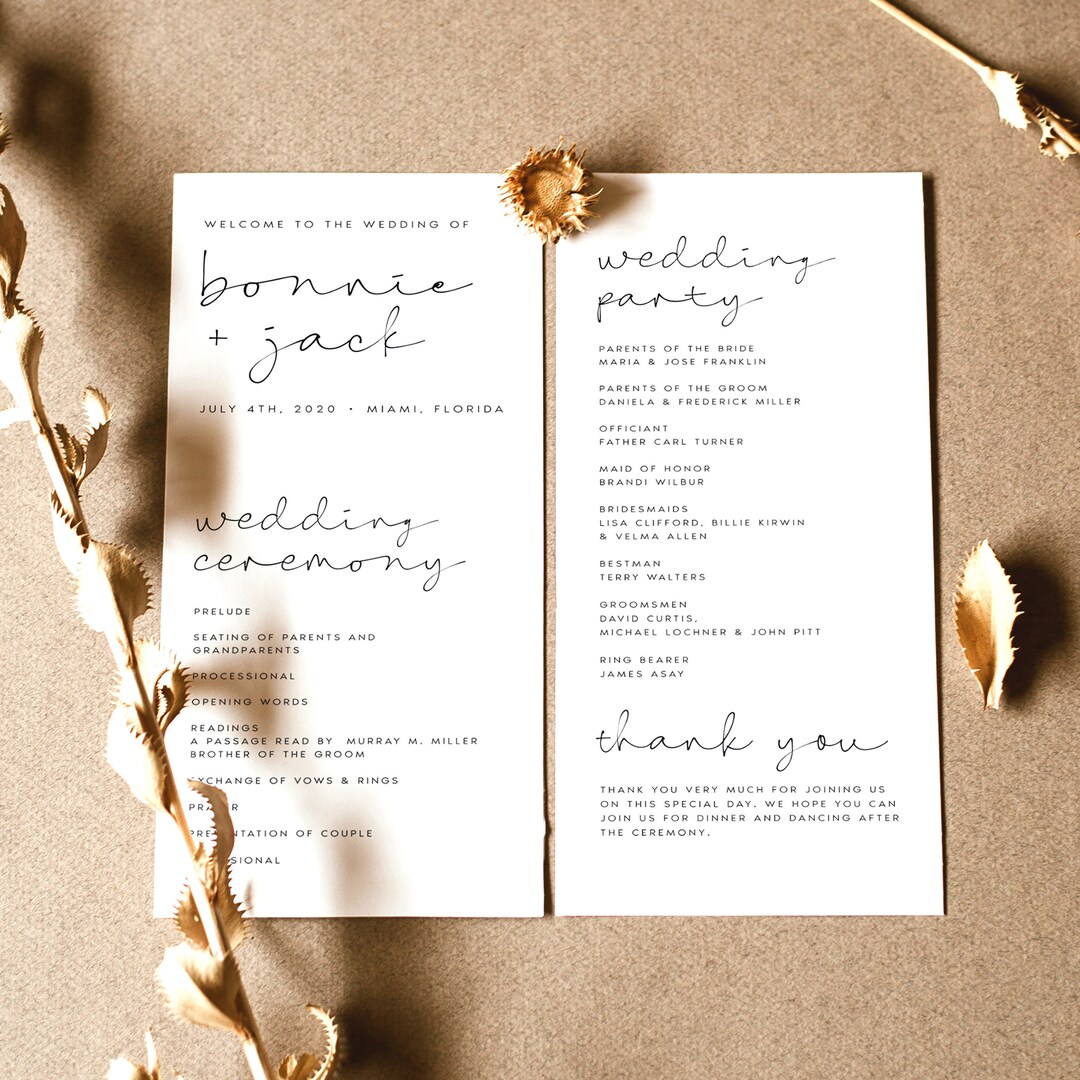 WELCOME TO THE WEDDING OF
bonnie
+ jack
JULY 4TH, 2020 • MIAMI, FLORIDA
wedding
ceremony
PRELUDE
SEATING OF PARENTS AND
GRANDPARENTS
PROCESSIONAL
OPENING WORDS
READINGS
A PASSAGE READ BY MURRAY M. MILLER
BROTHER OF THE GROOM
EXCHANGE OF VOWS & RINGS
PRAYER
PRESENTATION OF COUPLE
wedding
party
PARENTS OF THE BRIDE
MARIA & JOSE FRANKLIN
PARENTS OF THE GROOM
DANIELA & FREDERICK MILLER
OFFICIANT
FATHER CARL TURNER
MAID OF HONOR
BRANDI WILBUR
BRIDESMAIDS
LISA CLIFFORD, BILLIE KIRWIN
& VELMA ALLEN
BESTMAN
TERRY WALTERS
GROOMSMEN
DAVID CURTIS,
MICHAEL LOCHNER & JOHN PITT
RING BEARER
JAMES ASAY
thank you
THANK YOU VERY MUCH FOR JOINING US
ON THIS SPECIAL DAY. WE HOPE YOU CAN
JOIN US FOR DINNER AND DANCING AFTER
THE CEREMONY.